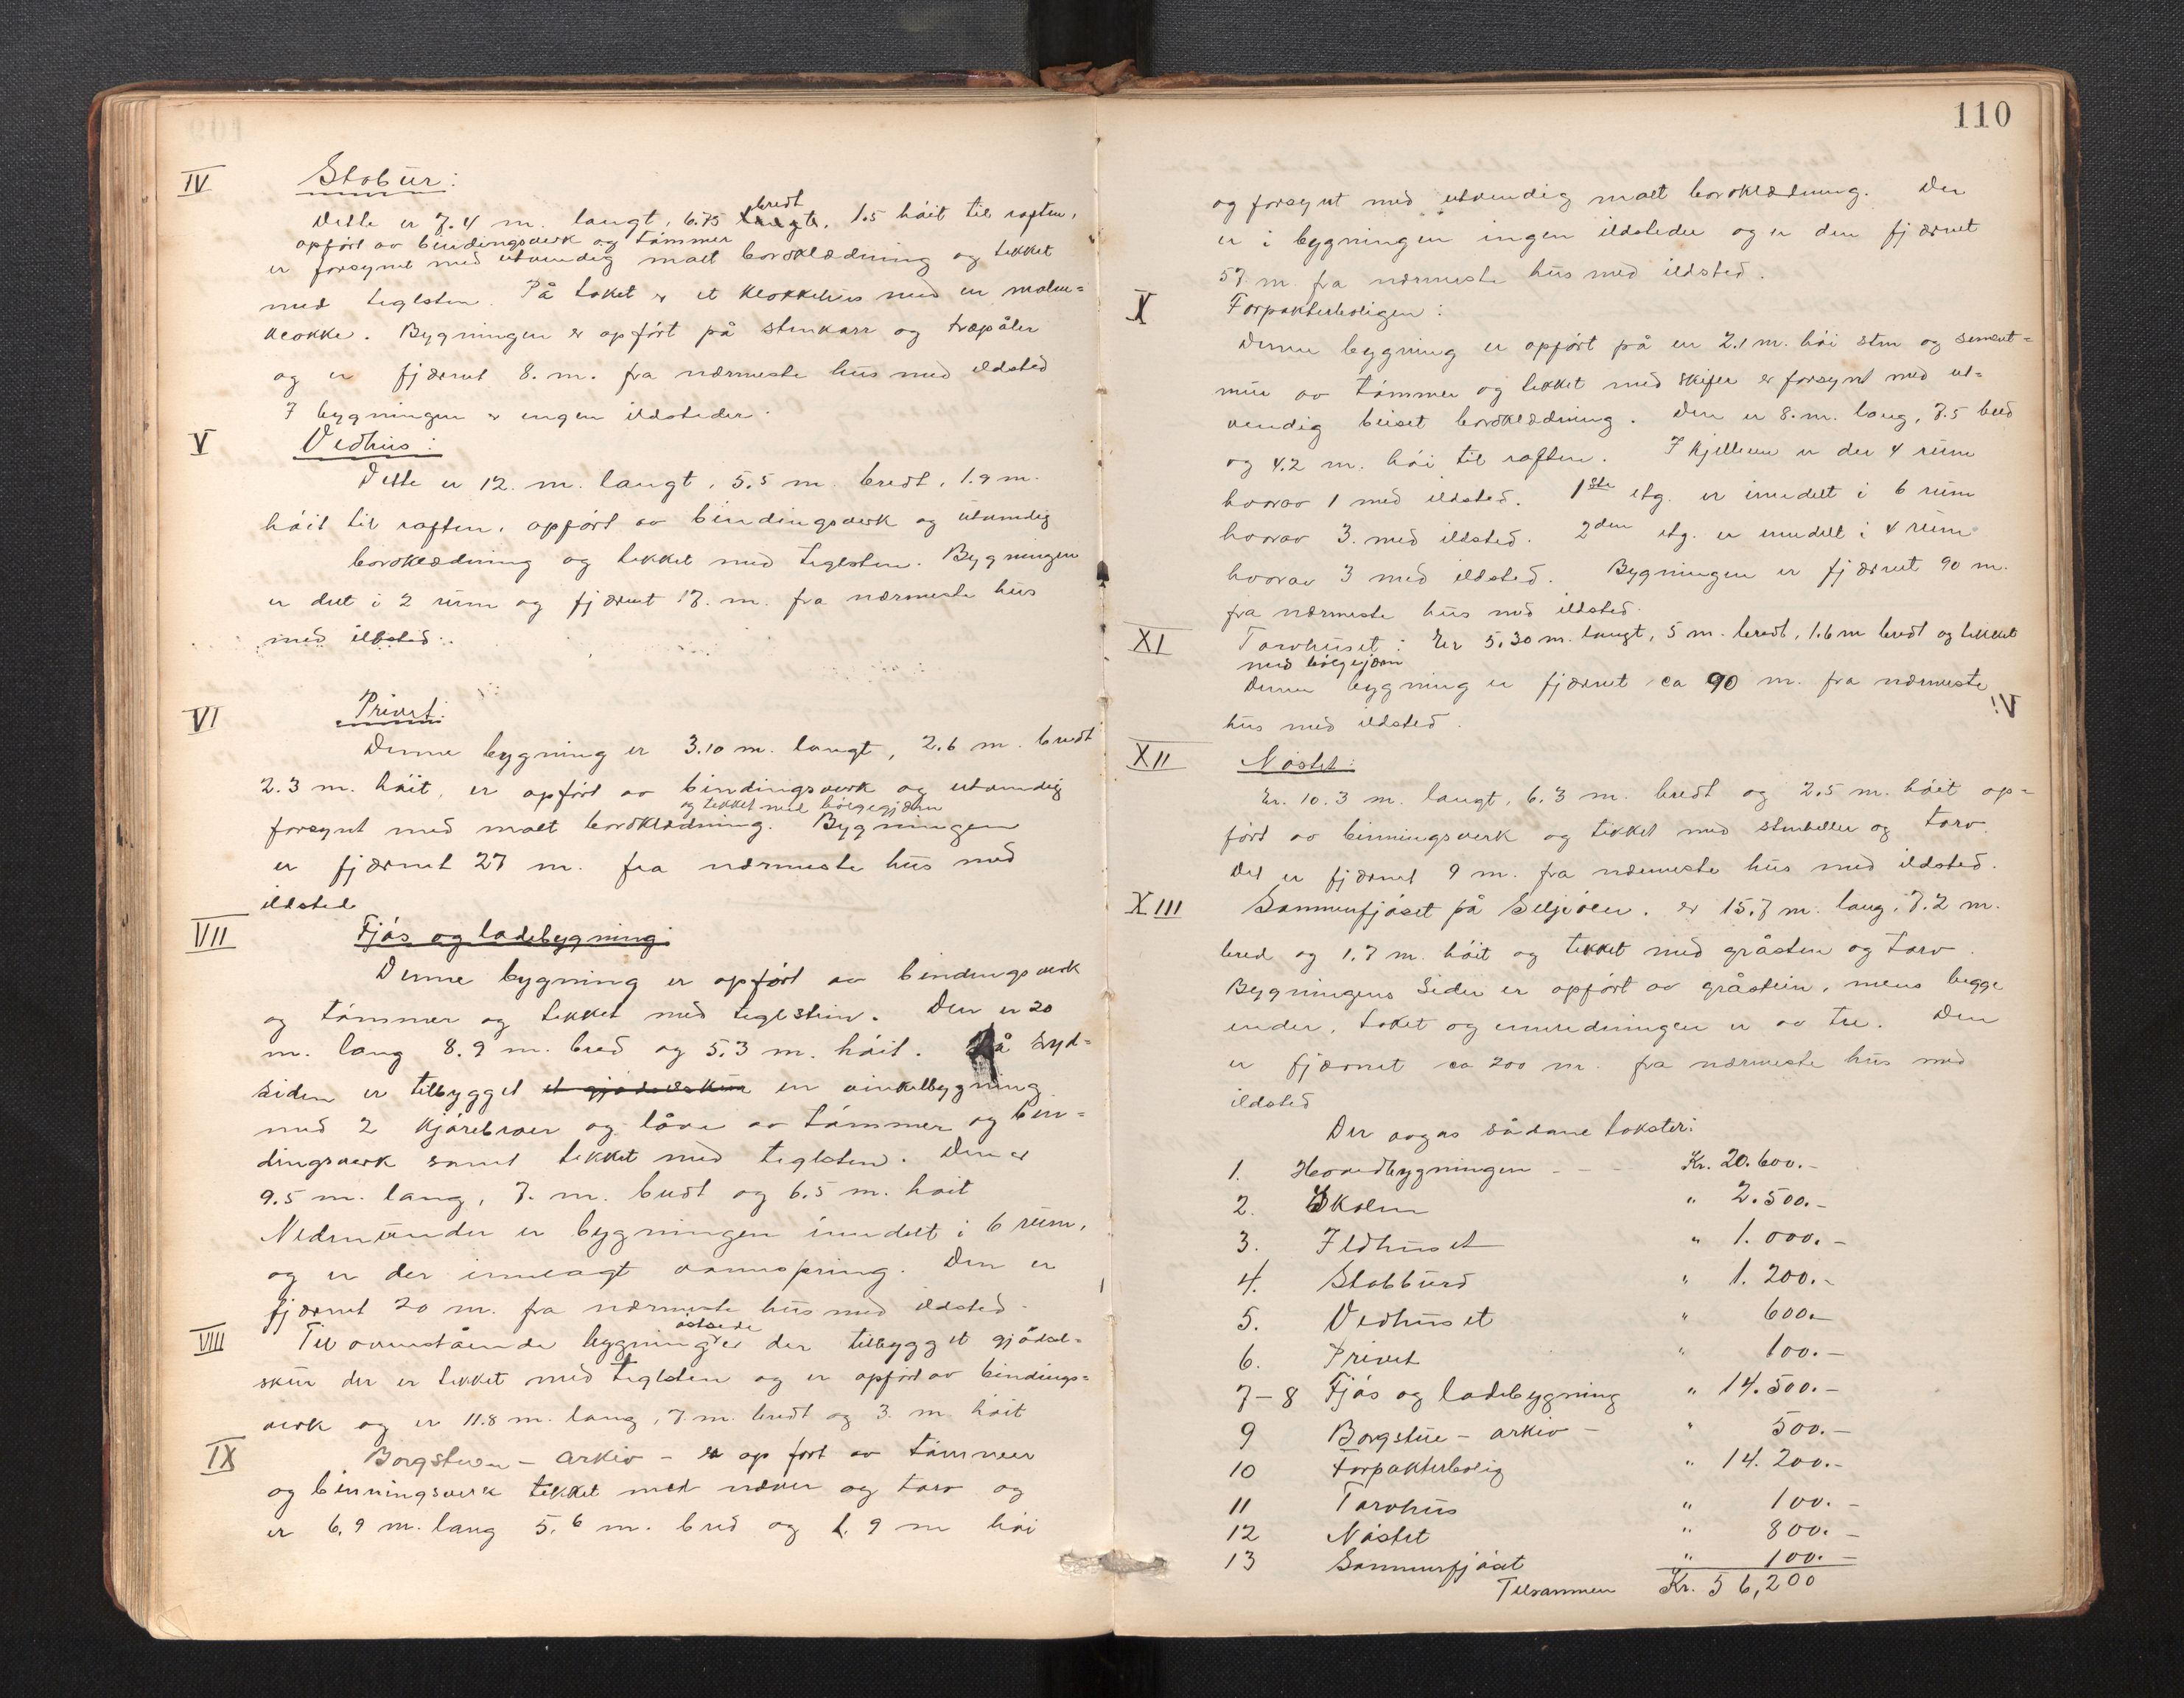 IV Stobur:
Dette er 7.4 m. langt, 6.75 bredt langt, 1.5 höit til raften,
opfört av bindingsverk og tömmer
er forsynt med utvendig malt bordklædning og tekket
med teglsten. På taket er et klokkehus med en malm=
klokke. Bygningen er opfört på stenkarr og træpåler
og er fjærnet 8. m. fra nærmeste hus med ildsted
I bygningen er ingen ildsteder.
V Vedhus:
Dette er 12. m. langt, 5.5 m. bredt, 1.9 m.
höit til raften, opfört av bindingsverk og utvendig
bordklædning og tekket med teglsten. Bygningen
er delt i 2 rum og fjærnet 17. m. fra nærmeste hus
med ildsted.
VI Privet:
Denne bygning er 3.10 m. langt, 2.6 m. bredt
2.3 m. höit, er opfört av bindingsverk og utvendig
og tekket med bölgegjærn
forsynt med malt bordklædning. Bygningen
er fjærnet 27 m. fra nærmeste hus med
ildsted
VII Fjös og ladebygning:
Denne bygning er opfört av bindingsverk
og tömmer og tekket med teglstein. Den er 20
m. lang 8.9 m. bred og 5.3 m. höit. På syd=
siden er tilbygget et gjödselskur en vinkelbygning
med 2 kjörebroer og låve av tömmer og bin=
dingsverk samt tekket med teglsten. Den er
9.5 m. lang, 7. m. bredt og 6.5 m. höit
Nedenunder er bygningen inndelt i 6 rum,
og er der innlagt vannspring. Den er
fjærnet 20 m. fra nærmeste hus med ildsted.
östside
VIII Til ovenstående bygning er der tilbygg et gjödsel=
skur der er tekket med teglsten og er opfört av bindings=
verk og er 11.8 m. lang, 7. m. bredt og 3. m. höit
IX Borgstuen – arkiv – er opfört av tömmer
og binningsverk tekket med næver og torv og
er 6.9 m. lang 5.6 m. bred og 1.9 m höi
110
og forsynt med utvendig malt bordklædning. Der
er i bygningen ingen ildsteder og er den fjærnet
57 m. fra nærmeste hus med ildsted.
X Forpakterboligen:
Denne bygning er opfört på en 2.1 m. höi sten og sement=
mur av tömmer og tekket med skifer er forsynt med ut=
vendig beiset bordklædning. Den er 8. m. lang, 7.5 bred
og 4.2 m. höi til raften. I kjelleren er der 4 rum
hvorav 1 med ildsted. 1ste etg. er inndelt i 6 rum
hvorav 3. med ildsted. 2den etg. er inndelt i 4 rum
hvorav 3 med ildsted. Bygningen er fjærnet 90 m.
fra nærmeste hus med ildsted.
XI Torvhuset: Er 5.30 m. langt, 5 m. bredt, 1.6 m bredt og tekket
med bölgejærn
Denne bygning er fjærnet ca 90 m. fra nærmeste
hus med ildsted.
XII Nöstet:
Er. 10.3 m. langt, 6.3 m. bredt og 2.5 m. höit op=
fört av binningsverk og tekket med stenheller og torv.
Det er fjærnet 9 m. fra nærmeste hus med ildsted.
XIII Sommerfjöset på Seljeölen. er 15.7 m. lang, 7.2 m.
bred og 1.7 m. höit og tekket med gråsten og torv.
Bygningens sider er opfört av gråstein, mens begge
ender, taket og innredningen er av tre. Den
er fjærnet ca 200 m. fra nærmeste hus med
ildsted
Der avgas sådane takster:
1. Hovedbygningen - - - Kr. 20.600.-
2. Skolen " 2.500.-
3. Ildhuset " 1.000.-
4. Stabburd " 1.200.-
5. Vedhuset " 600.-
6. Privet " 100.-
7-8 Fjös og ladebygning " 14.500.-
9 Borgstue - arkiv - " 500.-
10 Forpakterbolig " 14.200.-
11 Torvhus " 100.-
12 Nöstet " 800.-
13 Sommerfjöset " 100.-
Tilsammen Kr. 56,200